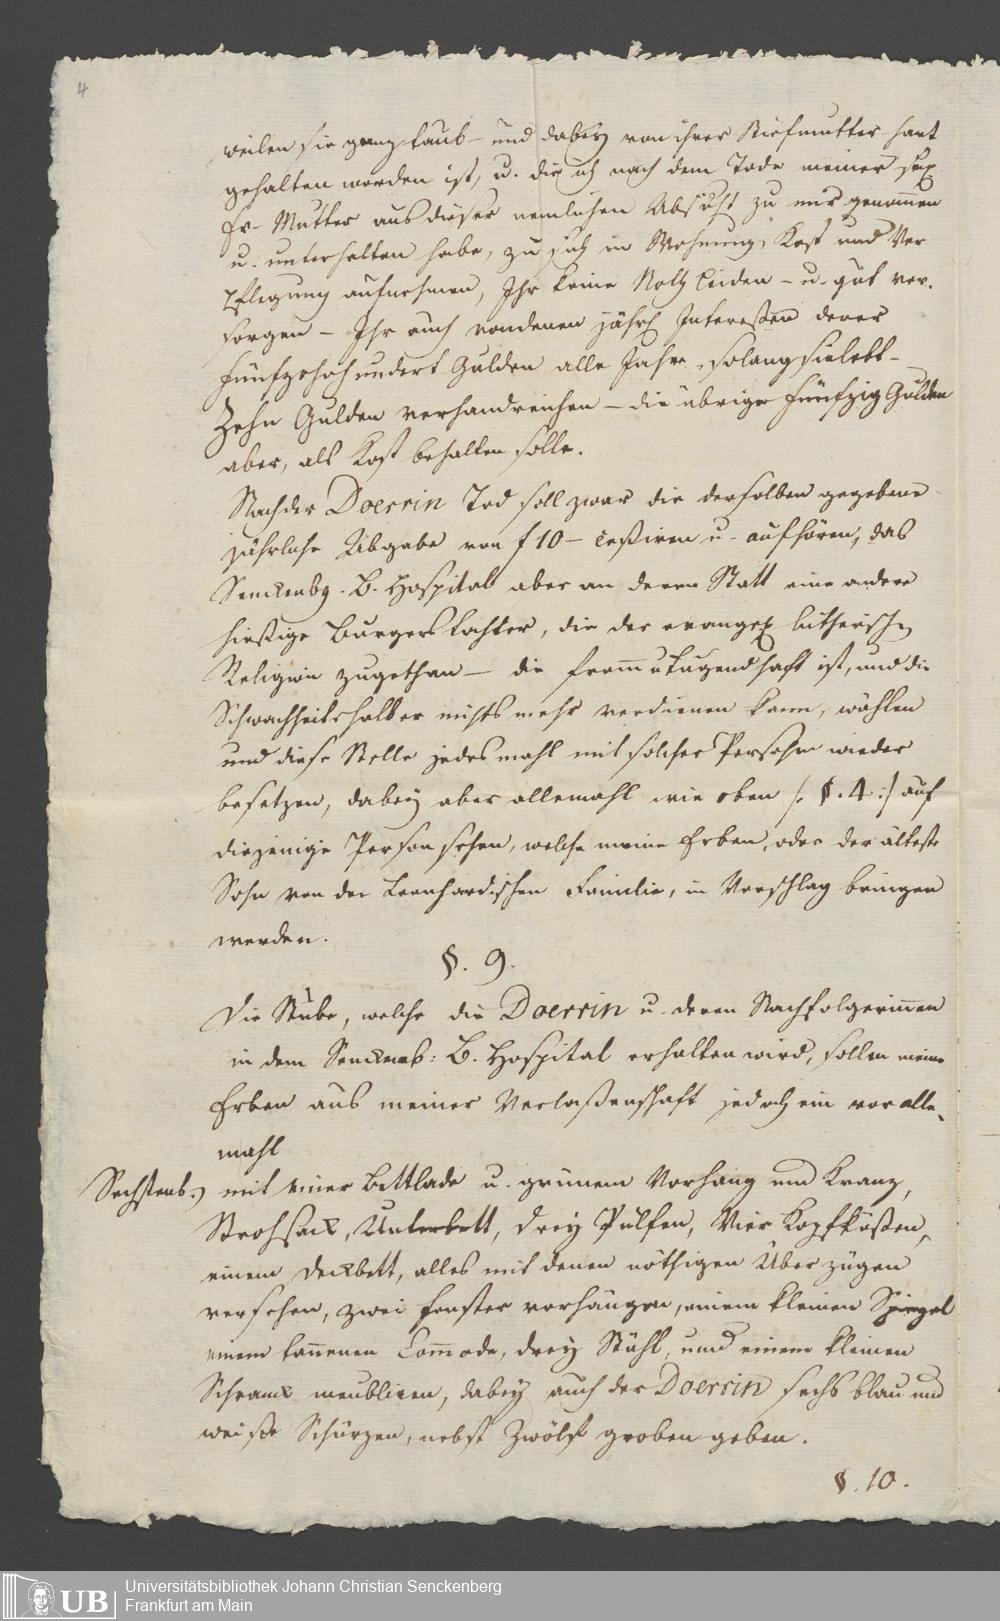 4
weilen sie gantz taub - und dabey von ihrer Stiefmutter hart
gehalten worden ist, u. die ich nach dem Tode meiner sel.
Fr. Mutter aus dieser nemlichen Absicht zu mir genommen
u. unterhalten habe, zu sich in Wohnung, Kost und Ver
pflegung aufnehmen, Ihr keine Noth leiden - u. gut ver.
sorgen - Ihr auch von denen jährl Interessen derer
Fünfzehnhundert Gulden alle Jahr, solang sie lebt -
Zehn Gulden verhandreichen - die übrige Fünfzig Gulden
aber, als Kost behalten solle.
Nach der Doerrin Tod soll zwar die derselben gegebene
jährliche Abgabe von f 10 - ceßiren u. aufhören, das
Senckenbg. B. Hospital aber an deren Statt eine andere
hießige Burgerstochter, die der evangel lutherischn
Religion zugethan - die from u tugendhaft ist, und die
Schwachheitshalber nichts mehr verdienen kann, wählen
und diese Stelle jedesmahl mit solcher Persohn wieder
besetzen, dabey aber allemahl wie oben /. §. 4 :/ auf
diejenige Person sehen, welche meine Erben, oder der älteste
Sohn von der Leonhardischen Familie, in Vorschlag bringen
werden.
§. 9.
Die Stube, welche die Doerrin u. deren Nachfolgerinnen
in dem Senckenb: B. Hospital erhalten wird, sollen meine
Erben aus meiner Verlaßenschaft jedoch ein vor alle
mahl
Sechstens.) mit einer Bettlade u. grünem Vorhang und Kranz,
Strohsack, Unterbett, drey Pülfen, Vier Kopfküßen,
einem Deckbett, alles mit denen nöthigen Überzügen
versehen, zwei Fenster vorhängen, einem kleinen Spiegel
einem tannenen Commode, drey Stühl, und einem kleinen
Schranck meubliren, dabey auch der Doerrin sechs blau und
weiße Schürzen, nebst Zwölf groben geben.
§. 10.
UB
Universitätsbibliothek Johann Christian Senckenberg
Frankfurt am Main